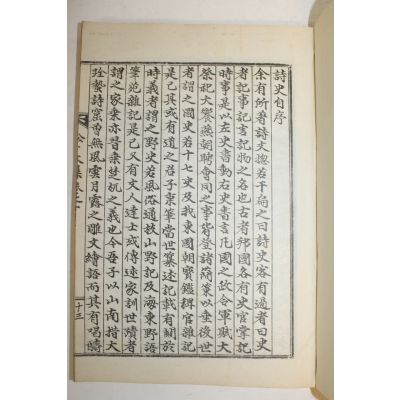 詩史自序
余有所著詩文若干扁之曰詩史客有過者曰史
者記事記言記物之名也古者邦國各有史官掌記
時事是以左史書動右史書言凡國之政令軍賦大
祭祀大饗燕朝聘會同之事皆登諸簡策以垂後世
者謂之國史若十七史及我東國朝寶鑑稗官雜記
是已其或有道之君子秉筆當世纂述記載有關於
時義者謂之野史若風俗通技山野記及海東野語
筆苑雜記是已又有文人達士或傳述家訓世蹟者
謂之家乘亦晉乘楚杌之義也今吾子以山南措大
蟄詩窩無風雲月露之雕文繪語而其有唱酬
十三